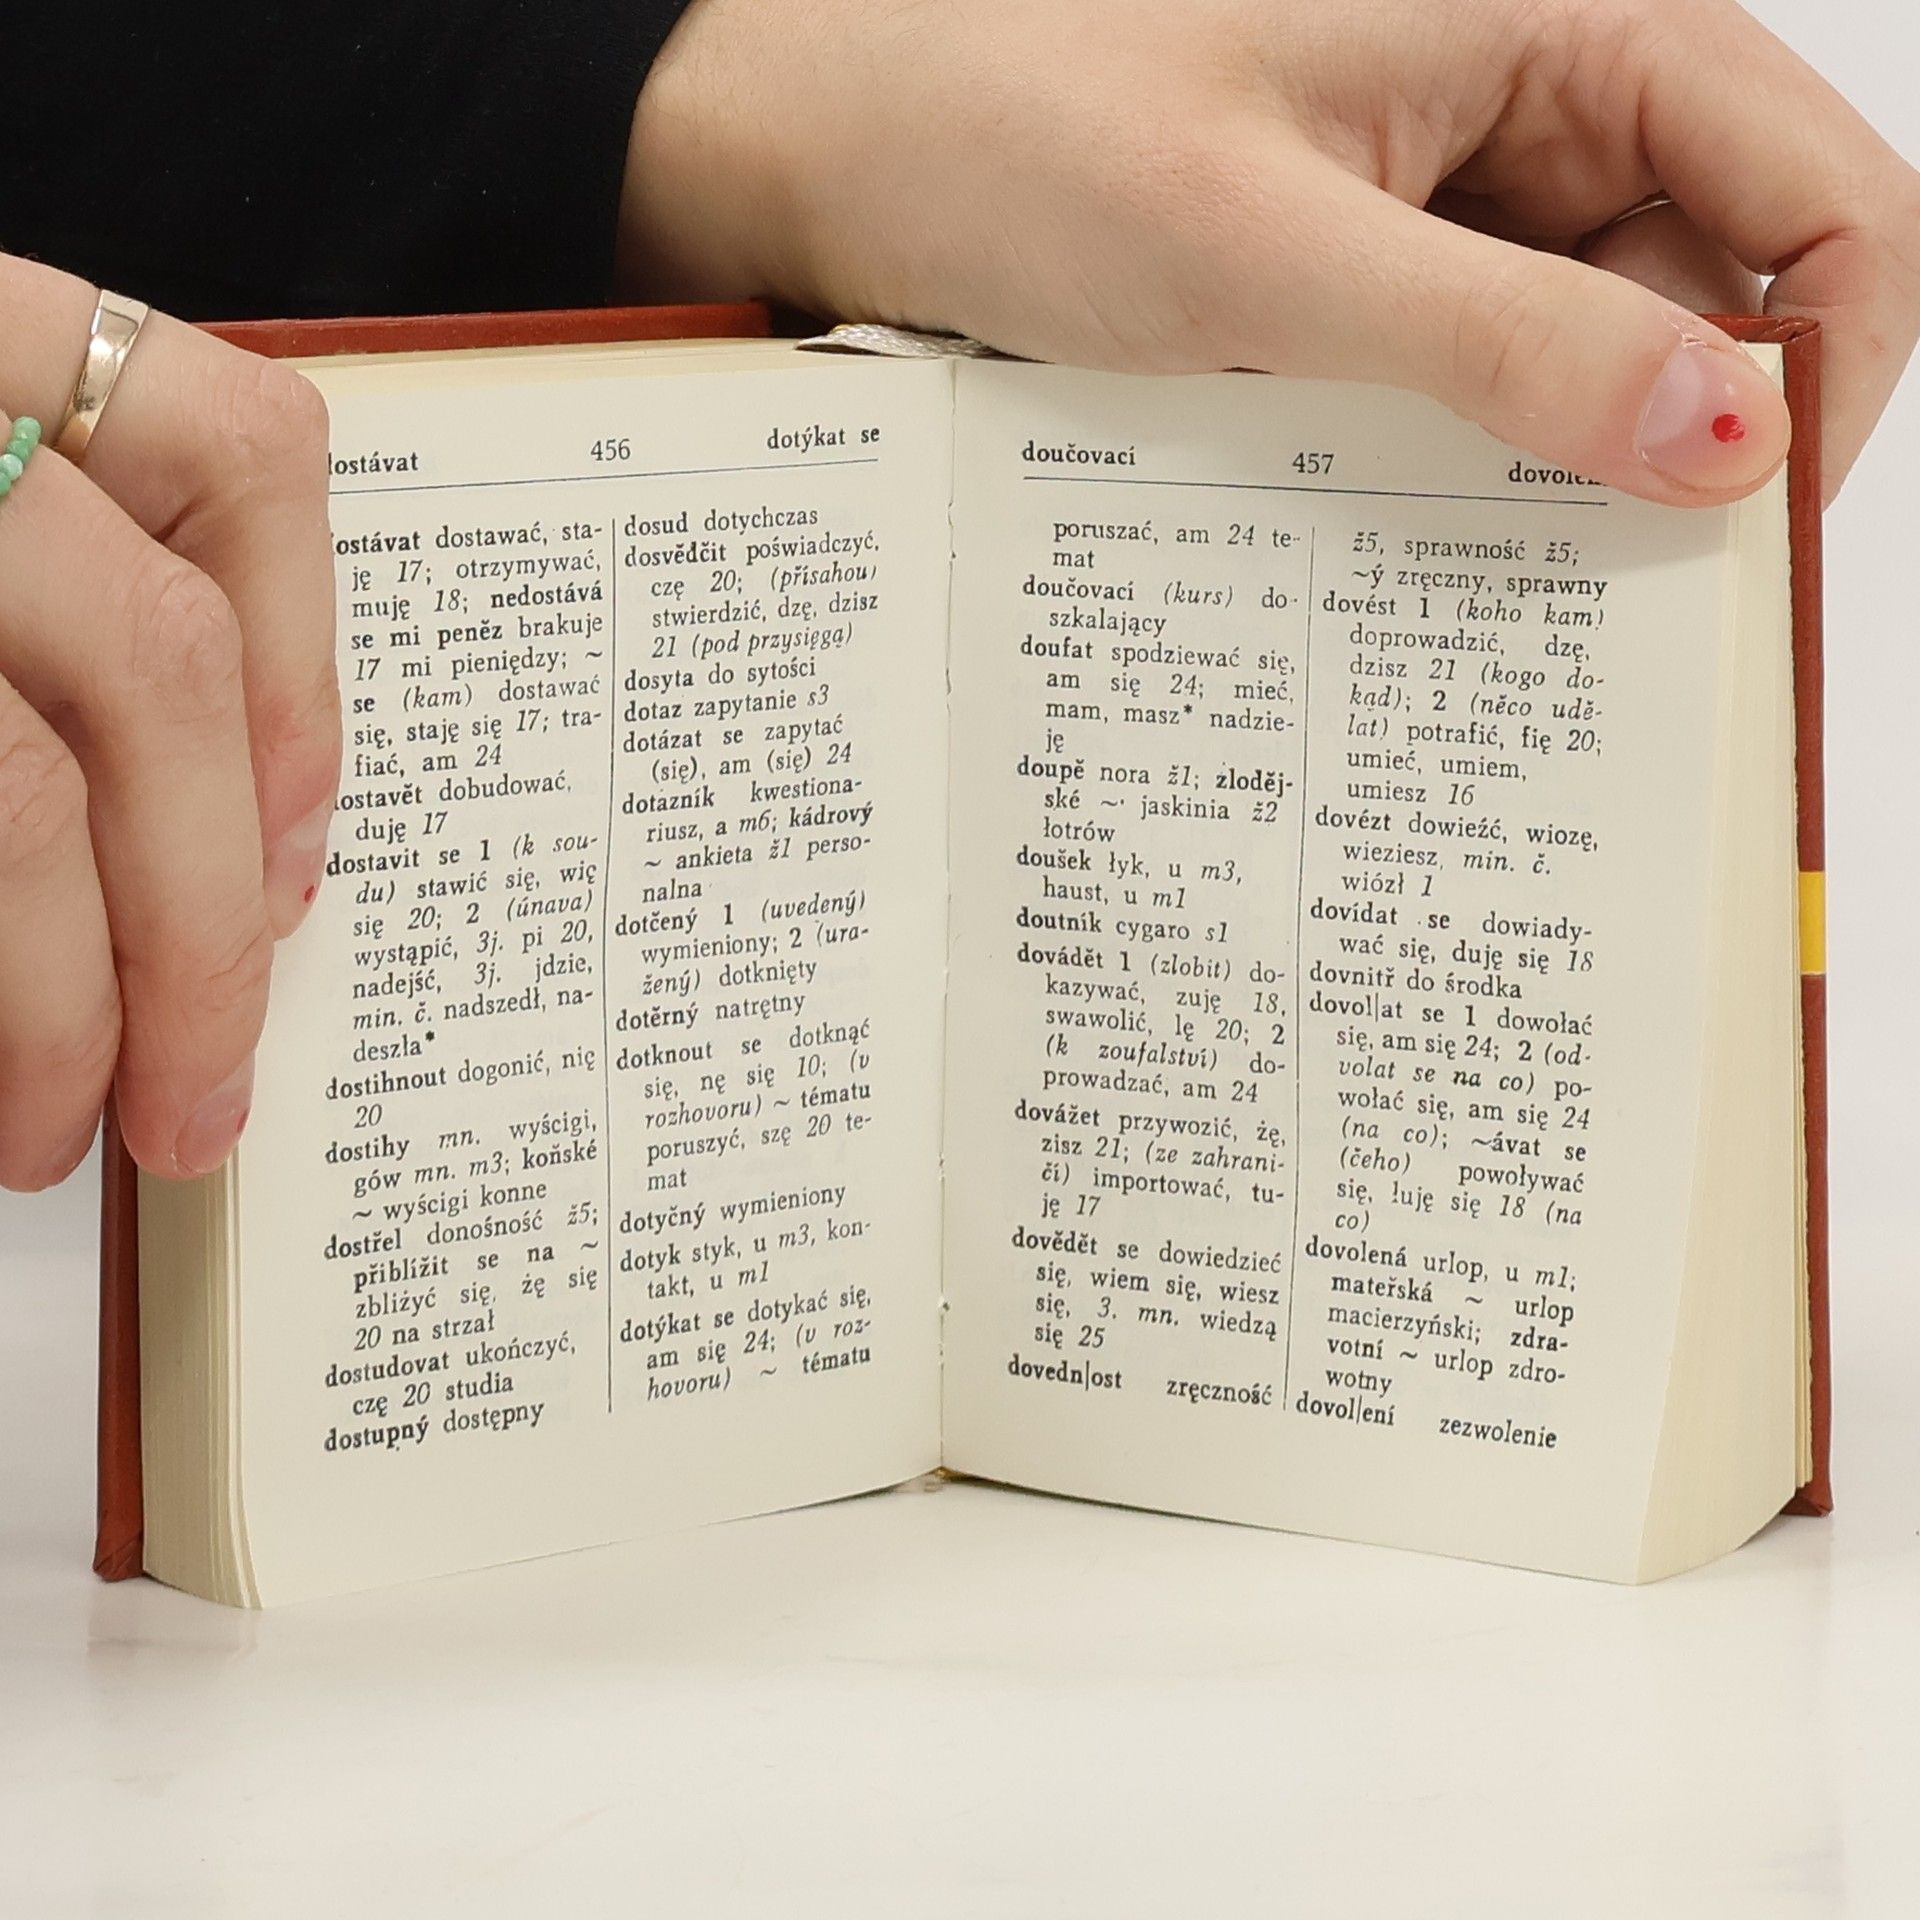 456
dotýkat se
dostawać, sta-
ję 17; otrzymywać,
muję 18; nedostává
se mi peněz brakuje
17 mi pieniędzy; ~
se (kam) dostawać
się, staję się 17; tra-
fiać, am 24
dobudować,
duję 17
dostavit se 1 (k sou-
du) stawić się, wię
się 20; 2 (únava)
wystąpić, 3j. pi 20,
nadejść, 3j. jdzie,
min. č. nadszedł, na-
deszła*
dostihnout dogonić, nię
20
dostihy mn. wyścigi,
gów mn. m3; koňské
~ wyścigi konne
dostřel donośność ž5;
přiblížit se na ~
zbliżyć się, żę się
20 na strzał
dostudovat ukończyć,
czę 20 studia
dostupný dostępny
dosud dotychczas
dosvědčit poświadczyć,
czę 20; (přísahou)
stwierdzić, dzę, dzisz
21 (pod przysięgą)
dosyta do sytości
dotaz zapytanie s3
dotázat se zapytać
(się), am (się) 24
dotazník kwestiona-
riusz, a m6; kádrový
~ ankieta ž1 perso-
nalna
dotčený 1 (uvedený)
wymieniony; 2 (ura-
žený) dotknięty
dotěrný natrętny
dotknout se dotknąć
się, nę się 10; (v
rozhovoru) ~ tématu
poruszyć, szę 20 te-
mat
dotyčný wymieniony
dotyk styk, u m3, kon-
takt, u m1
dotýkat se dotykać się,
am się 24; (v roz-
hovoru) ~ tématu
doučovací
457
poruszać, am 24 te-
mat
doučovací (kurs) do-
szkalający
doufat spodziewać się,
am się 24; mieć,
mam, masz* nadzie-
ję
doupě nora ž1; zloděj-
ské ~ jaskinia ž2
łotrów
doušek łyk, u m3,
haust, u m1
doutník cygaro s1
dovádět 1 (zlobit) do-
kazywać, zuję 18,
swawolić, lę 20; 2
(k zoufalství) do-
prowadzać, am 24
dovážet przywozić, żę,
zisz 21; (ze zahrani-
čí) importować, tu-
ję 17
dovědět se dowiedzieć
się, wiem się, wiesz
się, 3. mn. wiedzą
się 25
dovedn|ost zręczność
ž5, sprawność ž5;
~ý zręczny, sprawny
dovést 1 (koho kam)
doprowadzić, dzę,
dzisz 21 (kogo do-
kąd); 2 (něco udě-
lat) potrafić, fię 20;
umieć, umiem,
umiesz 16
dovézt dowieźć, wiozę,
wieziesz, min. č.
wiózł 1
dovídat se dowiady-
wać się, duję się 18
dovnitř do środka
dovol|at se 1 dowołać
się, am się 24; 2 (od-
volat se na co) po-
wołać się, am się 24
(na co); ~ávat se
(čeho) powoływać
się, łuję się 18 (na
co)
dovolená urlop, u m1;
mateřská ~ urlop
macierzyński; zdra-
votní ~ urlop zdro-
wotny
dovol|ení zezwolenie